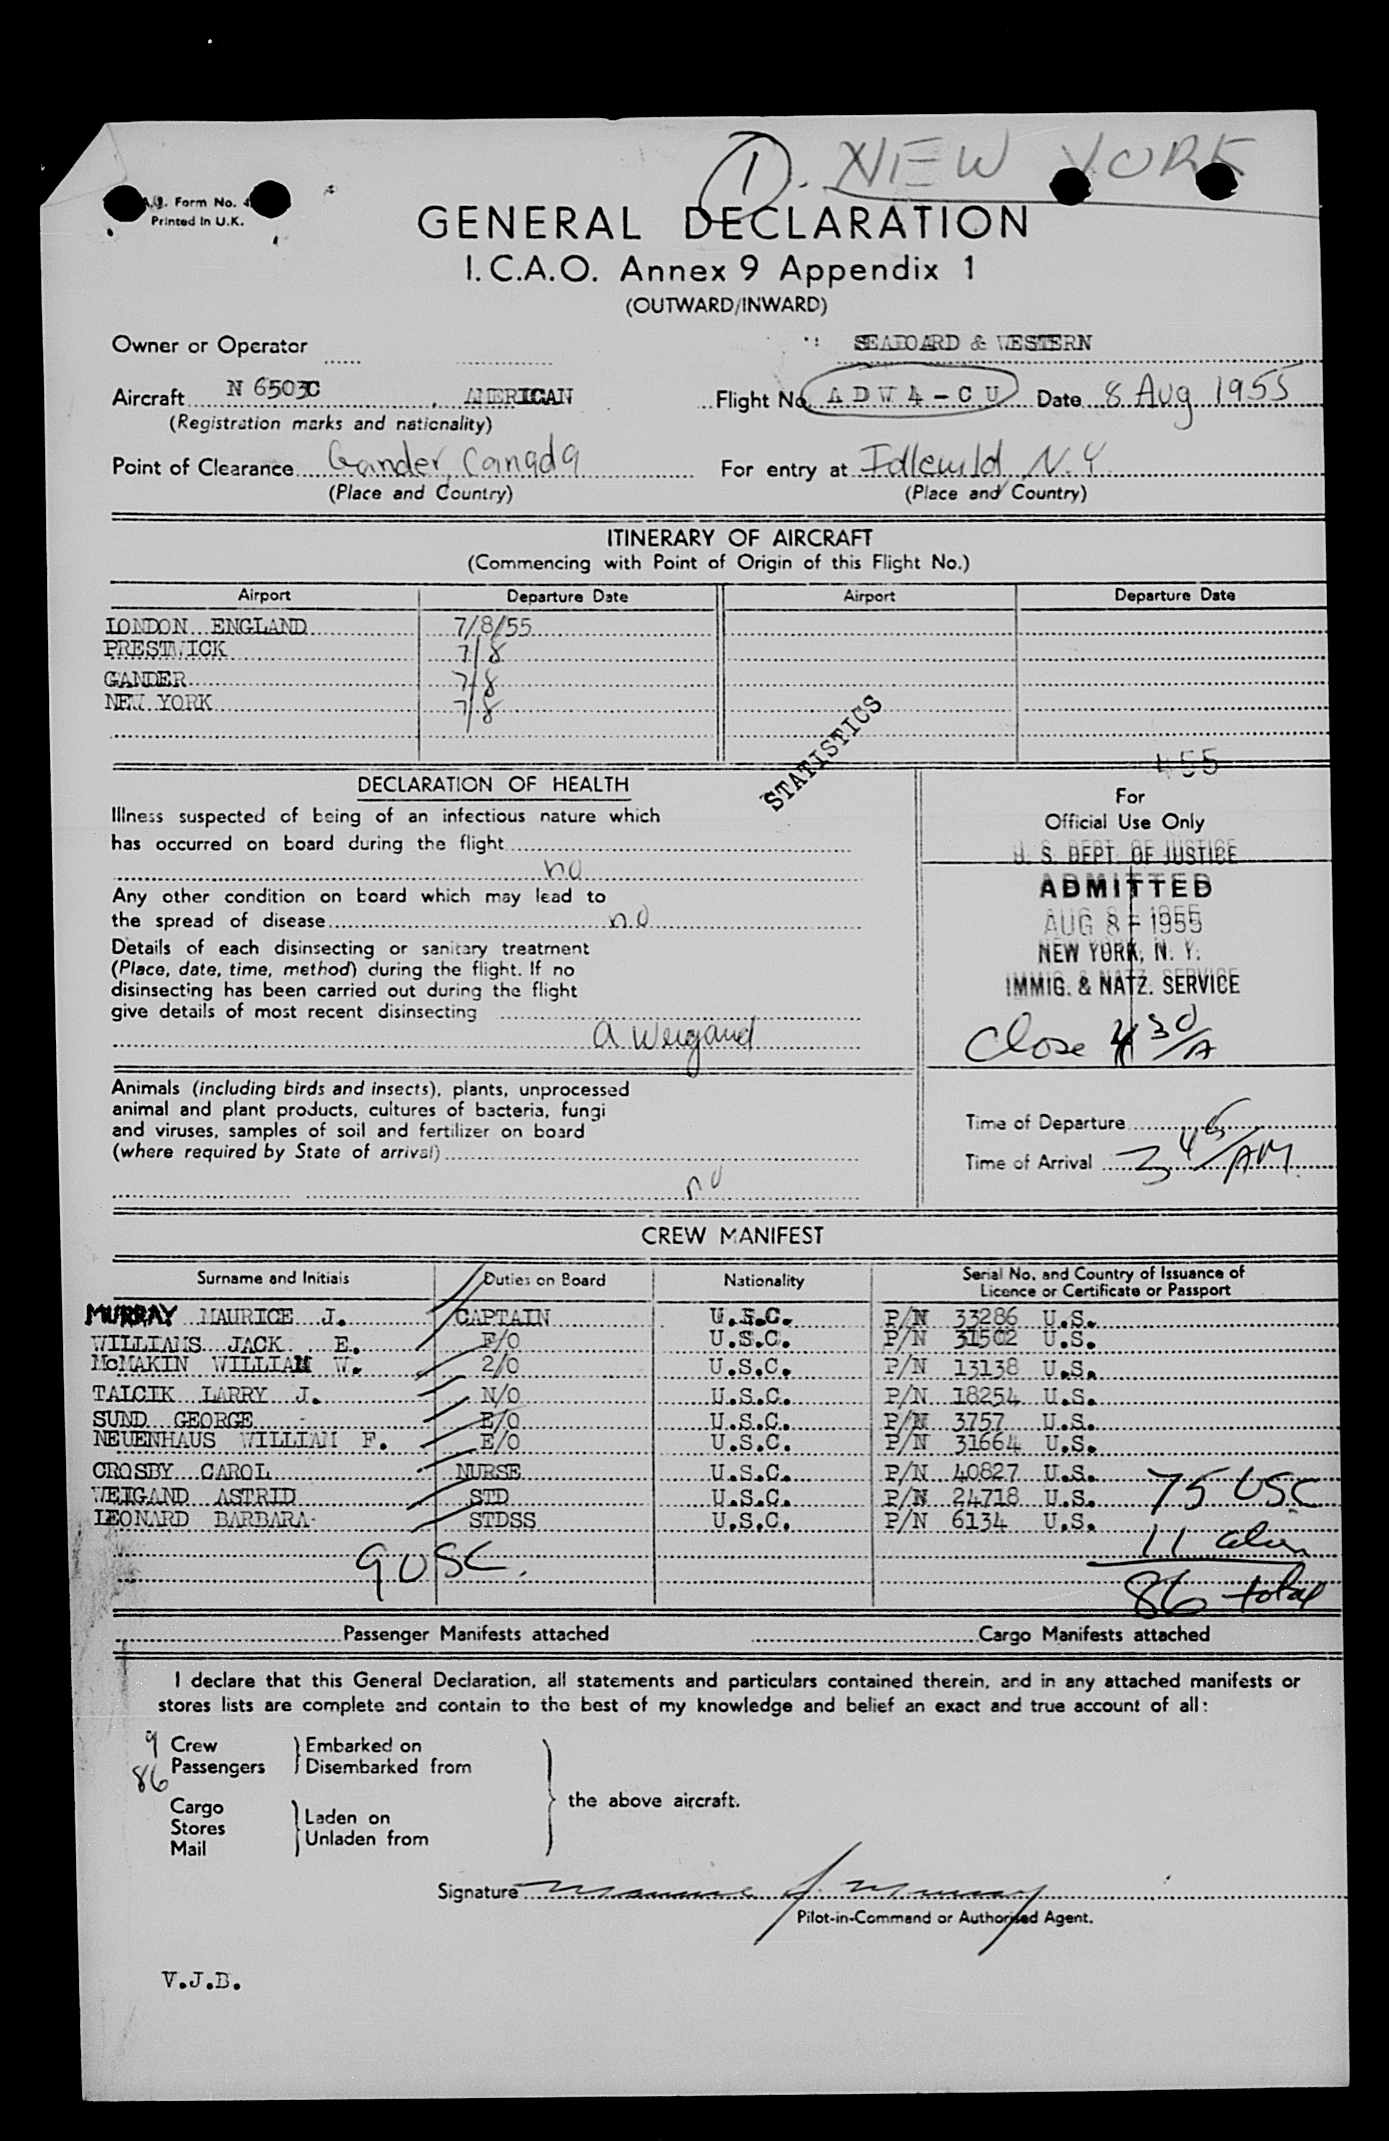 ① . NEW YORK
Form No. 4
Printed in U.K.
GENERAL DECLARATION
I.C.A.O. Annex 9 Appendix 1
(OUTWARD/INWARD)
Owner or Operator SEABOARD & WESTERN
Aircraft N 6503C , AMERICAN Flight No. ADW4-CU Date 8 Aug 1955
(Registration marks and nationality)
Point of Clearance Gander, Canada For entry at Idlewild N.Y.
(Place and Country) (Place and Country)
ITINERARY OF AIRCRAFT
(Commencing with Point of Origin of this Flight No.)
Airport Departure Date Airport Departure Date
LONDON ENGLAND 7/8/55
PRESTWICK 7/8
GANDER 7/8
NEW YORK 7/8
STATISTICS
455
DECLARATION OF HEALTH
Illness suspected of being of an infectious nature which
has occurred on board during the flight
no
Any other condition on board which may lead to
the spread of disease no
Details of each disinsecting or sanitary treatment
(Place, date, time, method) during the flight. If no
disinsecting has been carried out during the flight
give details of most recent disinsecting
A Weigand
Animals (including birds and insects), plants, unprocessed
animal and plant products, cultures of bacteria, fungi
and viruses, samples of soil and fertilizer on board
(where required by State of arrival)
no
For
Official Use Only
U. S. DEPT. OF JUSTICE
ADMITTED
AUG 8 - 1955
NEW YORK, N. Y.
IMMIG. & NATZ. SERVICE
Close 4 30/A
Time of Departure
Time of Arrival 3 45/AM
CREW MANIFEST
Surname and Initials Duties on Board Nationality Serial No. and Country of Issuance of
Licence or Certificate or Passport
MURRAY MAURICE J. CAPTAIN U.S.C. P/N 33286 U.S.
WILLIAMS JACK E. F/O U.S.C. P/N 31502 U.S.
McMAKIN WILLIAM W. 2/O U.S.C. P/N 13138 U.S.
TALCIK LARRY J. N/O U.S.C. P/N 18254 U.S.
SUND GEORGE E/O U.S.C. P/N 3757 U.S.
NEUENHAUS WILLIAM F. E/O U.S.C. P/N 31664 U.S.
CROSBY CAROL NURSE U.S.C. P/N 40827 U.S.
WEIGAND ASTRID STD U.S.C. P/N 24718 U.S. 75 USC
LEONARD BARBARA STDSS U.S.C. P/N 6134 U.S.
11
9 USC. 86 total
Passenger Manifests attached Cargo Manifests attached
I declare that this General Declaration, all statements and particulars contained therein, and in any attached manifests or
stores lists are complete and contain to the best of my knowledge and belief an exact and true account of all:
9 Crew } Embarked on
86 Passengers } Disembarked from
the above aircraft.
Cargo
Stores } Laden on
Mail } Unladen from
Signature Maurice J. Murray
Pilot-in-Command or Authorised Agent.
V.J.B.